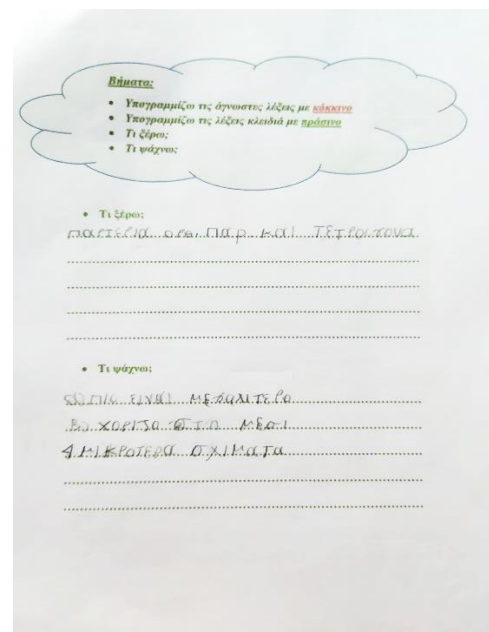 Βήματα:
• Υπογραμμίζω τις άγνωστες λέξεις με κόκκινο
• Υπογραμμίζω τις λέξεις κλειδιά με πράσινο
• Τι ξέρω;
• Τι ψάχνω;
• Τι ξέρω;
παρτέρια ορθ. παρ. και τετραγονα
• Τι ψάχνω;
πιο είναι μεγαλιτερο
χορίζο στιν μέσι
4 μικροτερα σχιματα